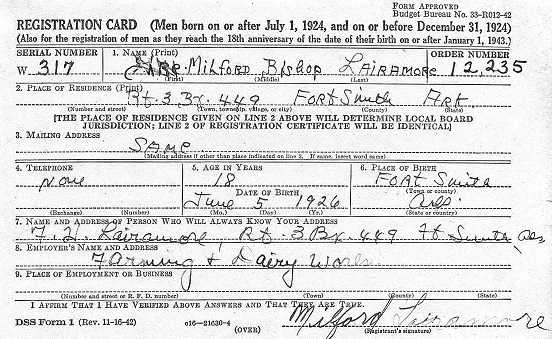 FORM APPROVED
Budget Bureau No. 33-R012-42
REGISTRATION CARD (Men born on or after July 1, 1924, and on or before December 31, 1924)
(Also for the registration of men as they reach the 18th anniversary of the date of their birth on or after January 1, 1943.)
SERIAL NUMBER 1. NAME (Print) ORDER NUMBER
W 317 Milford Bishop Lairamore 12,235
(First) (Middle) (Last)
2. PLACE OF RESIDENCE (Print)
Rt 3 Bx 449 Fort Smith Ark
(Number and street) (Town, township, village, or city) (County) (State)
[THE PLACE OF RESIDENCE GIVEN ON LINE 2 ABOVE WILL DETERMINE LOCAL BOARD
JURISDICTION; LINE 2 OF REGISTRATION CERTIFICATE WILL BE IDENTICAL]
3. MAILING ADDRESS
SAME
(Mailing address if other than place indicated on line 2. If same, insert word same)
4. TELEPHONE 5. AGE IN YEARS 6. PLACE OF BIRTH
None 18 Fort Smith
DATE OF BIRTH (Town or county)
June 5 1926 Ark
(Exchange) (Number) (Mo.) (Day) (Yr.) (State or country)
7. NAME AND ADDRESS OF PERSON WHO WILL ALWAYS KNOW YOUR ADDRESS
F. H. Lairamore, Rt. 3 Bx 449 Ft Smith Ark
8. EMPLOYER'S NAME AND ADDRESS
Farming & Dairy Work
9. PLACE OF EMPLOYMENT OR BUSINESS
(Number and street or R. F. D. number) (Town) (County) (State)
I AFFIRM THAT I HAVE VERIFIED ABOVE ANSWERS AND THAT THEY ARE TRUE.
DSS Form 1 (Rev. 11-16-42) c16-21630-4 (OVER) Milford Lairamore
(Registrant's signature)